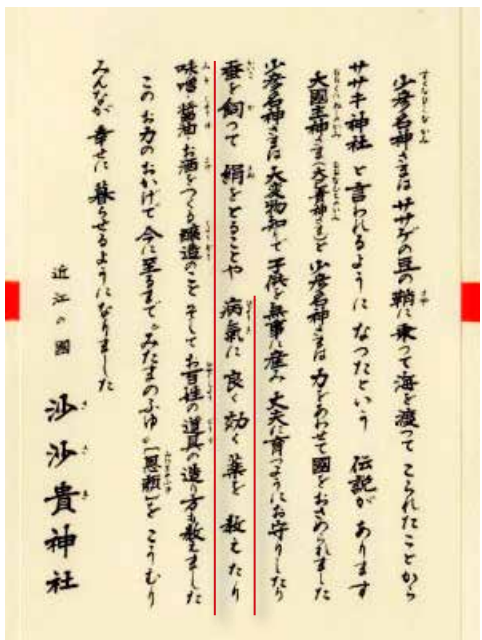 少彦名神さまは ササゲの豆の鞘に乗って海を渡って こられたことから
ササキ神社 と言われるように なつたという 伝説が あります
大國主神さま(大己貴神さま)と 少彦名神さまは 力をあわせて國をおさめられました
少彦名神さまは 大変物知りで 子供を無事に産み 大夫に育つようにお守りしたり
蚕を飼つて 絹をとることや 病氣に良く効く薬を 教えたり
味噌 醤油 お酒をつくる醸造のこと そして お百姓の道具の造り方も教えました
この お力の おかげで 今に至るまで「みたまのふゆ」[恩頼]を こうむり
みんなが 幸せに 暮らせるようになりました
近江の國 沙沙貴神社